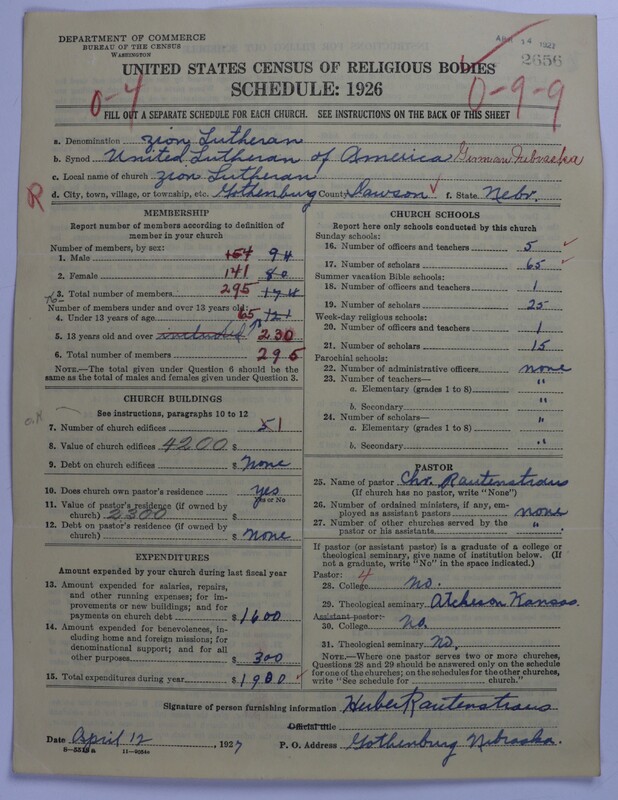 DEPARTMENT OF COMMERCE
BUREAU OF THE CENSUS
WASHINGTON
APR 14 1927
2656
UNITED STATES CENSUS OF RELIGIOUS BODIES
SCHEDULE: 1926
0-4
0-9-9
FILL OUT A SEPARATE SCHEDULE FOR EACH CHURCH. SEE INSTRUCTIONS ON THE BACK OF THIS SHEET
a. Denomination Zion Lutheran
b. Synod United Lutheran of America German Nebraska
c. Local name of church Zion Lutheran
R
d. City, town, village, or township, etc. Gothenburg County Dawson f. State Nebr.
MEMBERSHIP
Report number of members according to definition of
member in your church
Number of members, by sex:
1. Male 154 94
2. Female 141 80
3. Total number of members 295 174
Number of members under and over 13 years old:
4. Under 13 years of age 65 121
5. 13 years old and over included 230
6. Total number of members 295
NOTE.—The total given under Question 6 should be the
same as the total of males and females given under Question 3.
CHURCH BUILDINGS
See instructions, paragraphs 10 to 12
7. Number of church edifices 1
8. Value of church edifices 4200 $
9. Debt on church edifices $ None
10. Does church own pastor's residence yes
Yes or No
11. Value of pastor's residence (if owned by
church) 2300 $
12. Debt on pastor's residence (if owned by
church) $ None
EXPENDITURES
Amount expended by your church during last fiscal year
13. Amount expended for salaries, repairs,
and other running expenses; for im-
provements or new buildings; and for
payments on church debt $ 1600
14. Amount expended for benevolences, in-
cluding home and foreign missions; for
denominational support; and for all
other purposes $ 300
15. Total expenditures during year $ 1900
CHURCH SCHOOLS
Report here only schools conducted by this church
Sunday schools:
16. Number of officers and teachers 5
17. Number of scholars 65
Summer vacation Bible schools:
18. Number of officers and teachers 1
19. Number of scholars 25
Week-day religious schools:
20. Number of officers and teachers 1
21. Number of scholars 15
Parochial schools:
22. Number of administrative officers none
23. Number of teachers—
a. Elementary (grades 1 to 8) "
b. Secondary "
24. Number of scholars—
a. Elementary (grades 1 to 8) "
b. Secondary "
PASTOR
25. Name of pastor Chr. Rautenstraus
(If church has no pastor, write "None")
26. Number of ordained ministers, if any, em-
ployed as assistant pastors none
27. Number of other churches served by the
pastor or his assistants "
If pastor (or assistant pastor) is a graduate of a college or
theological seminary, give name of institution below. (If
not a graduate, write "No" in the space indicated.)
Pastor: 4
28. College no.
29. Theological seminary Atcheson Kansas.
Assistant pastor:
30. College no.
31. Theological seminary No.
NOTE.—Where one pastor serves two or more churches,
Questions 28 and 29 should be answered only on the schedule
for one of the churches; on the schedules for the other churches,
write "See schedule for church."
Signature of person furnishing information Huber Rautenstraus
Official title
Date April 12, 1927 P. O. Address Gothenburg Nebraska.
8-5518a 11-9254a